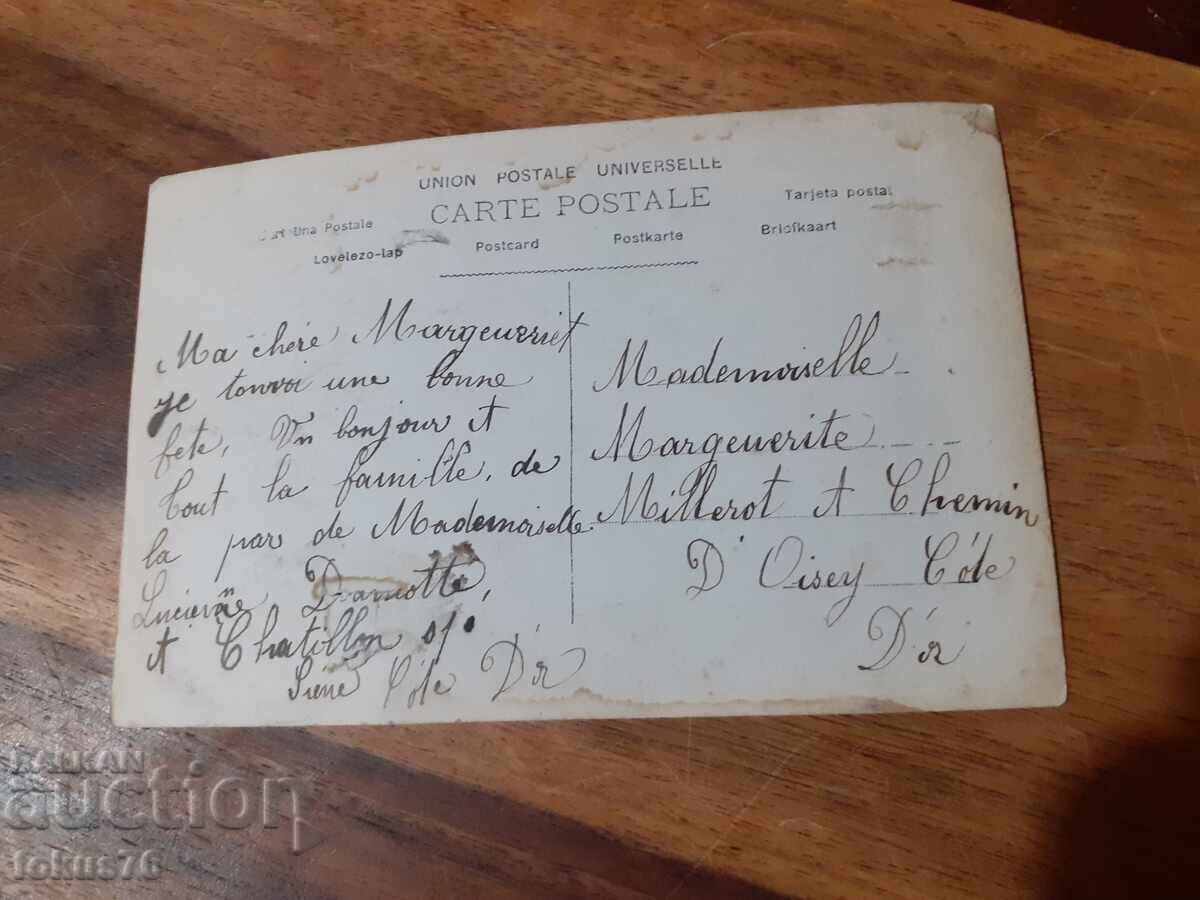 UNION POSTALE UNIVERSELLE
CARTE POSTALE
Una Postale
Tarjeta postal
Lovelezo-lap
Postcard
Postkarte
Briefkaart
Ma chere Margeueriet
je tonvoi une bonne
fete, Un bonjour et
tout la famille, de
la par de Mademoiselle
Lucienne Darnotte,
A Chatillon s/s
Siene Côte D'r
Mademoiselle
Margeuerite
Millerot A Chemin
D'Oisey Côte
D'r
BALKAN
auction
tokus76